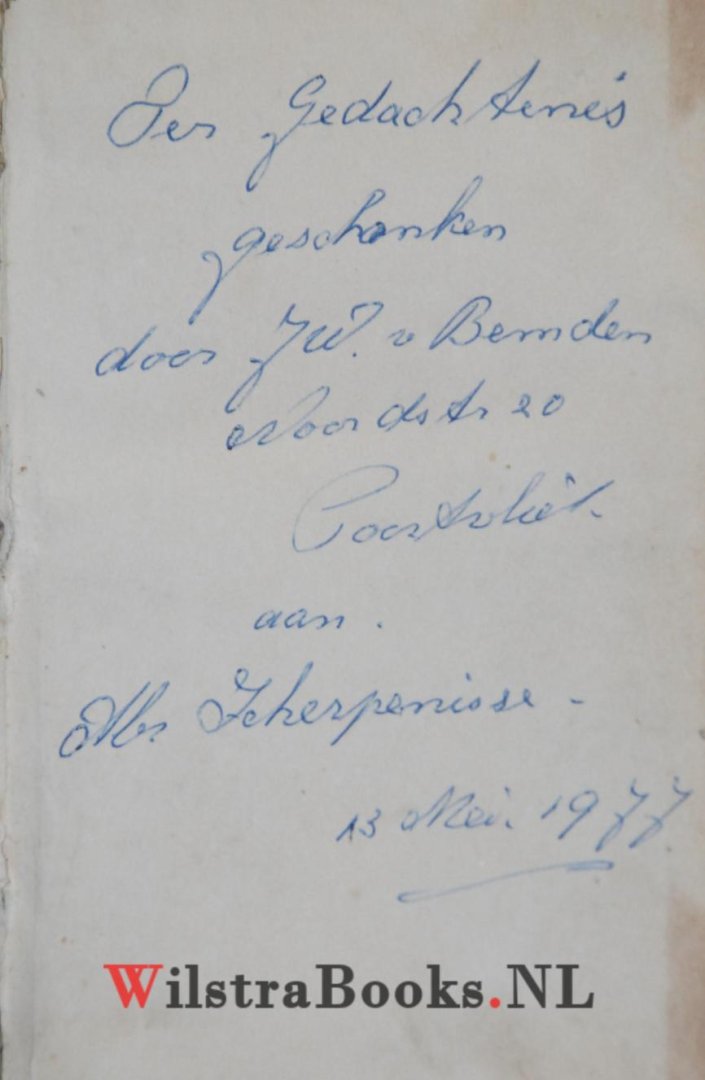 Ter Gedachtenis
geschonken
door J.W. v Bemden
Noordstr 20
Poortvliet.
aan.
Abr Scherpenisse -
13 Mei. 1977
WilstraBooks.NL